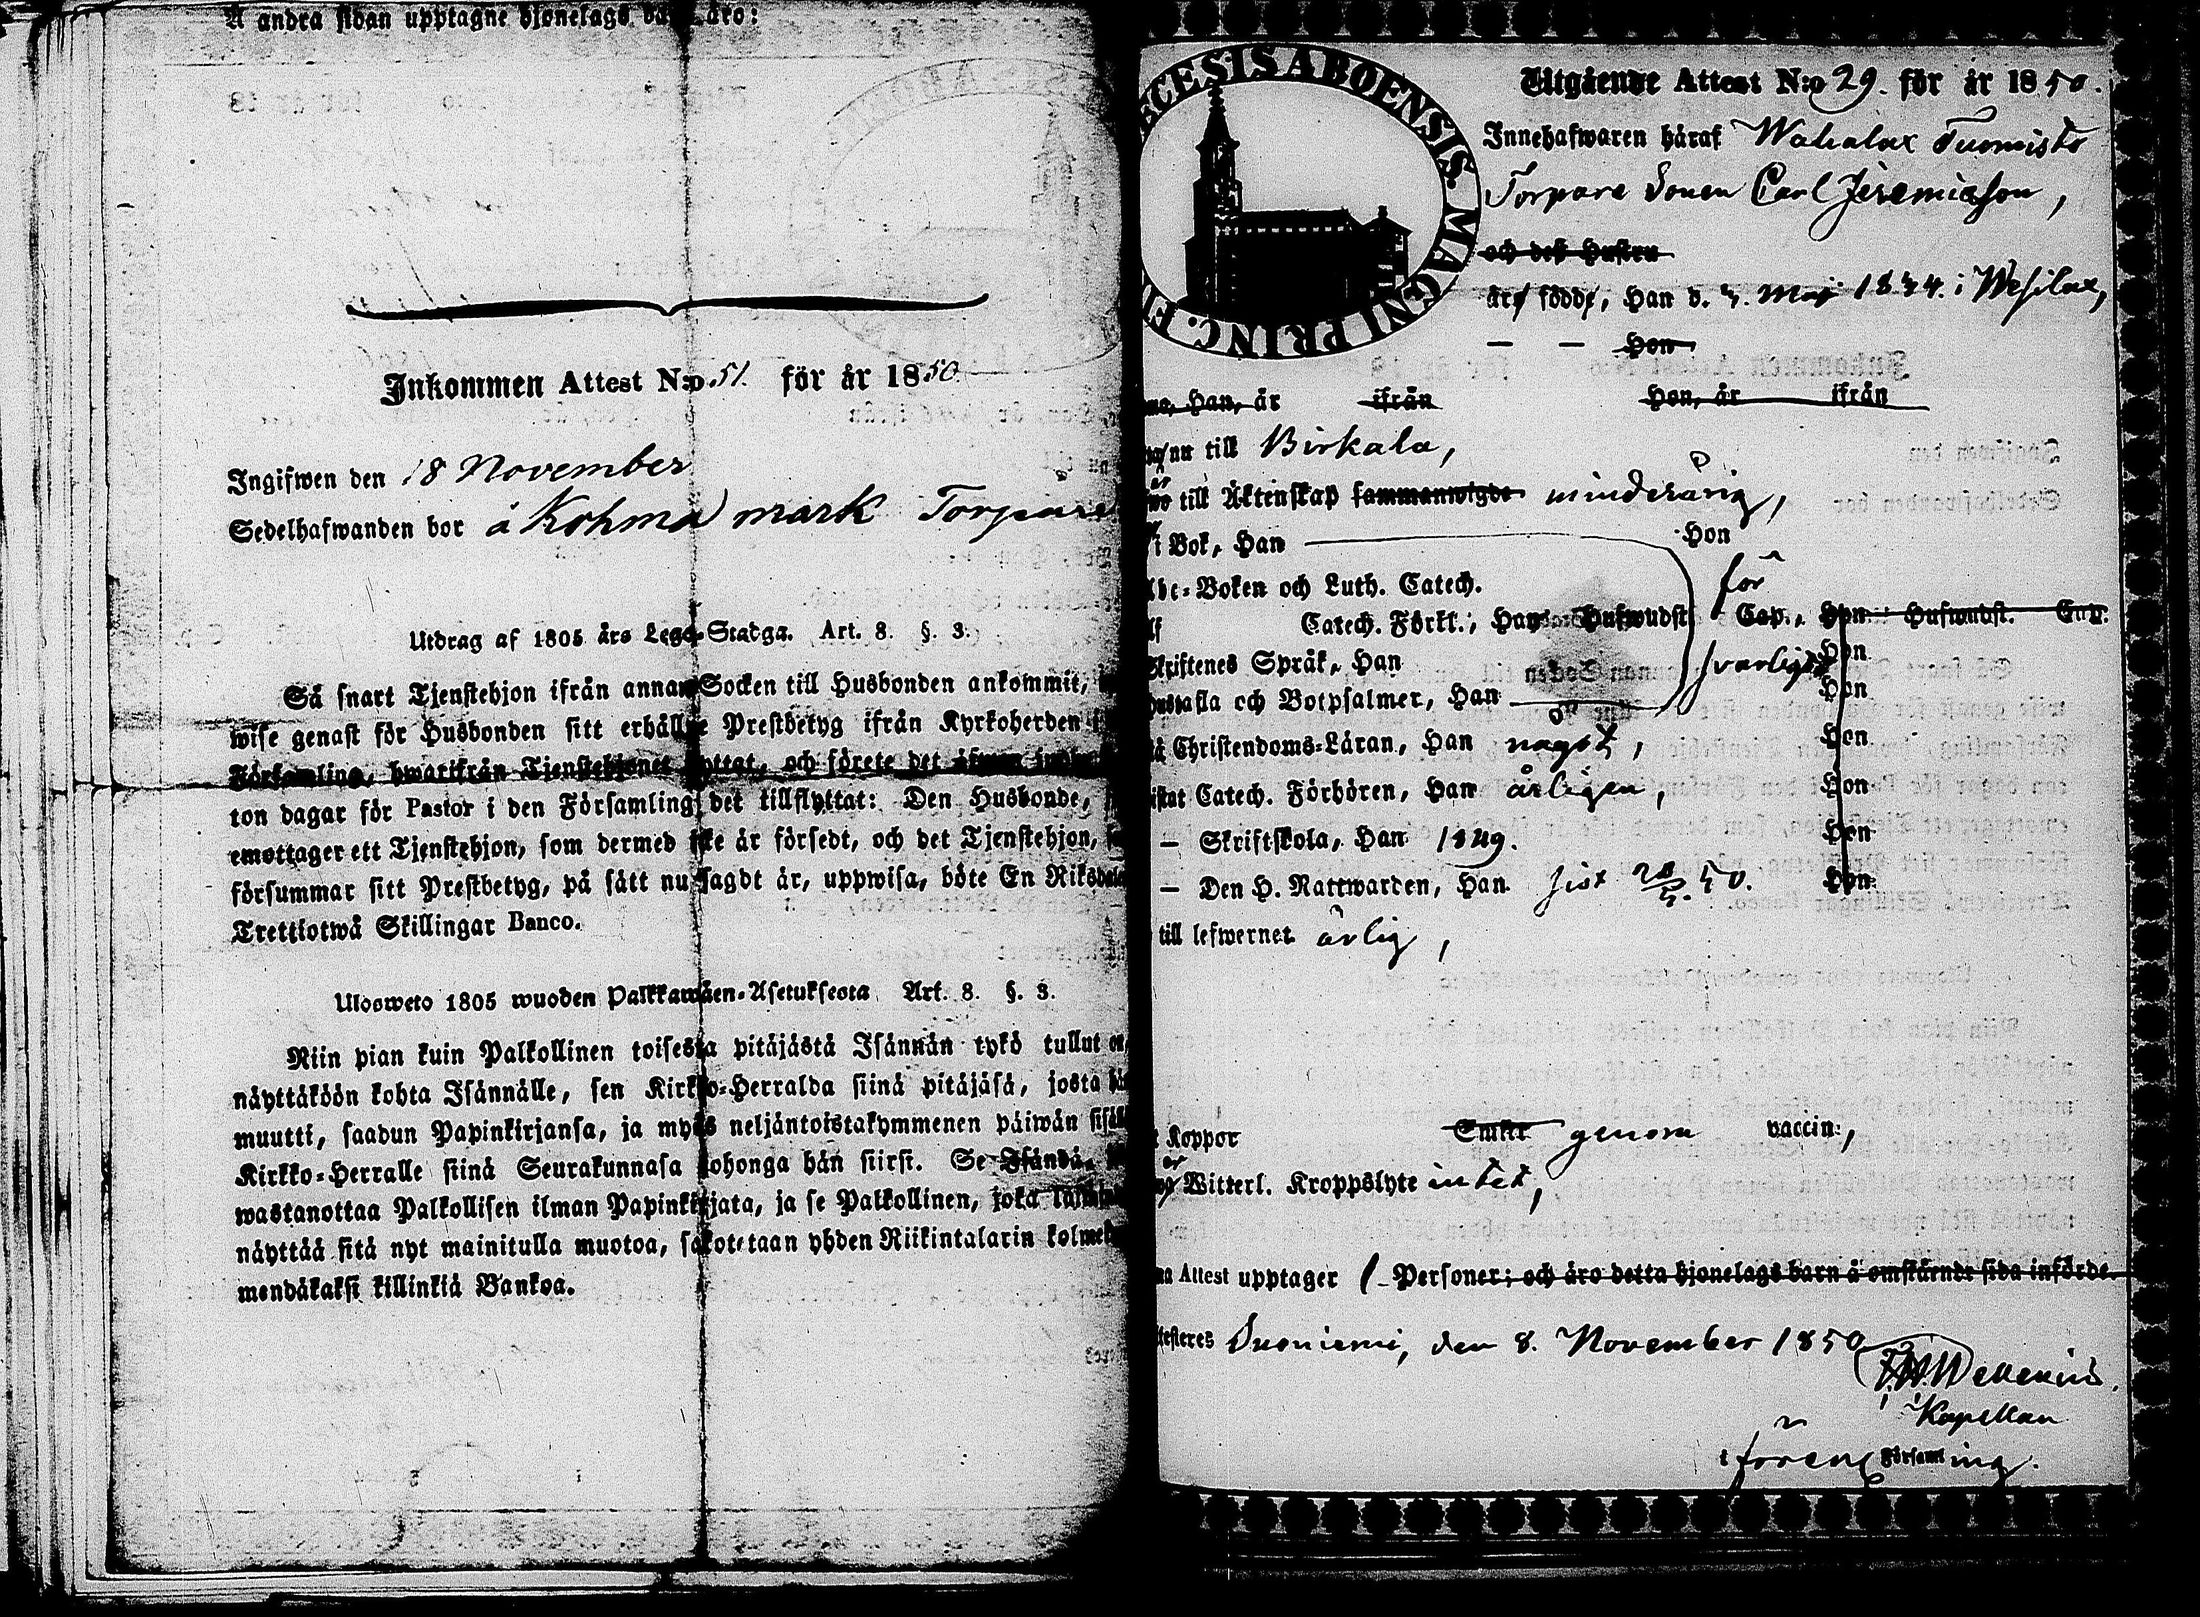 Å andra sidan upptagne hjonelags äro:
Inkommen Attest N:o 51. för år 1850.
Ingifwen den 18 November
Sedelhafwanden bor å Kohma mark Torpare
Utdrag af 1805 års Lego-Stadga. Art. 8. §. 3.
Så snart Tjenstehjon ifrån annan Socken till Husbonden ankommit,
wise genast för Husbonden sitt erhållne Prestbetyg ifrån Kyrkoherden i
Församling, hwarifrån Tjenstehjonet flyttat, och förete det äfwen
ton dagar för Pastor i den Församling det tillflyttat: Den Husbonde,
emottager ett Tjenstehjon, som dermed icke är försedt, och det Tjenstehjon,
försummar sitt Prestbetyg, på sätt nu sagdt är, uppwisa, böte En Riksdaler
Trettiotwå Skillingar Banco.
Ulosweto 1805 wuoden Palkkawäen-Asetuksesta Art. 8. §. 3.
Niin pian kuin Palkollinen toisesta pitäjästä Isännän tykö tullut on,
näyttäköön kohta Isännälle, sen Kirkko-Herralda siinä pitäjäsä, josta hän
muutti, saadun Papinkirjansa, ja myös neljäntoistakymmenen päiwän sisäll
Kirkko-Herralle siinä Seurakunnasa johonga hän siirsi. Se Isändä,
wastanottaa Palkollisen ilman Papinkirjata, ja se Palkollinen, joka
näyttää sitä nyt mainitulla muotoa, sakotetaan yhden Riikintalarin kolme
mendäkaksi killinkiä Bankoa.
ECESIS ABOENSIS MAGNI PRINC. FI
Utgående Attest N:o 29. för år 1850.
Innehafwaren häraf Wahalax Tuomisto
Torpare Sonen Carl Jeremiasson,
och deß Hustru
äro födde, Han d. 4. Maj 1834. i Wesilax,
— — Hon
Han, är ifrån Hon, är ifrån
nu till Birkala,
är
till Äktenskap sammanwigde minderårig,
i Bok, Han Hon
Abc-Boken och Luth. Catech. för
Catech. Förkl., Han Hufwudst. Cap., Hon Hufwudst. Cap.
Skriftenes Språk, Han swarligt Hon
Hustafla och Botpsalmer, Han Hon
Christendoms-Läran, Han något, Hon
Catech. Förhören, Han årligen, Hon
— Skriftskola, Han 1849. Hon
— Den H. Nattwarden, Han sist 50. Hon
till lefwernet ärlig,
Koppor Smitt genom vaccin.,
är
Witterl. Kroppslyte intet,
Attest upptager 1 Personer; och äro detta hjonelags barn å omstående sida införde.
Suoniemi, den 8. November 1850
Wellenius.
Kapellan
i fören Församling.